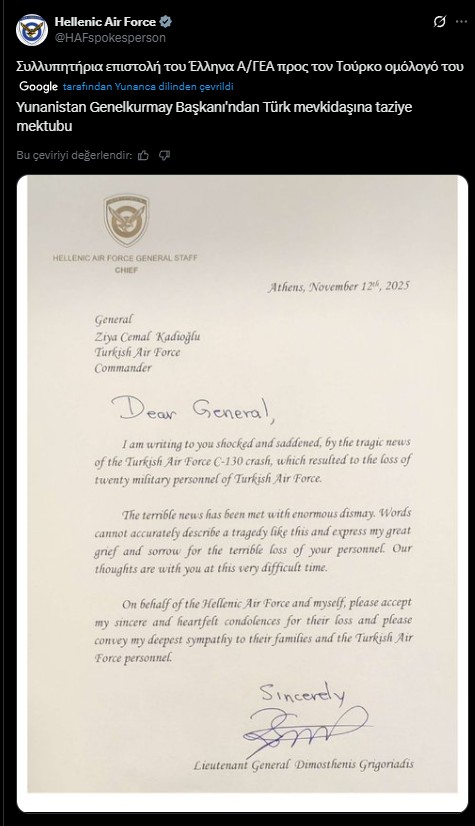 Hellenic Air Force
@HAFspokesperson
Συλλυπητήρια επιστολή του Έλληνα Α/ΓΕΑ προς τον Τούρκο ομόλογό του
Google tarafından Yunanca dilinden çevrildi
Yunanistan Genelkurmay Başkanı'ndan Türk mevkidaşına taziye
mektubu
Bu çeviriyi değerlendir:
HELLENIC AIR FORCE GENERAL STAFF
CHIEF
Athens, November 12th, 2025
General
Ziya Cemal Kadıoğlu
Turkish Air Force
Commander
Dear General,
I am writing to you shocked and saddened, by the tragic news
of the Turkish Air Force C-130 crash, which resulted to the loss of
twenty military personnel of Turkish Air Force.
The terrible news has been met with enormous dismay. Words
cannot accurately describe a tragedy like this and express my great
grief and sorrow for the terrible loss of your personnel. Our
thoughts are with you at this very difficult time.
On behalf of the Hellenic Air Force and myself, please accept
my sincere and heartfelt condolences for their loss and please
convey my deepest sympathy to their families and the Turkish Air
Force personnel.
Sincerely
Lieutenant General Dimosthenis Grigoriadis